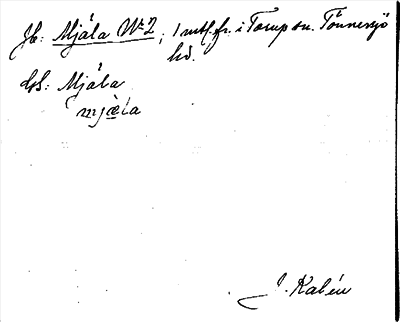 Jb: Mjåla Nr 2; 1 mtl. fr. i Torup sn. Tönnersjö
hd.
Gs: Mjåla
mjæla
J. Kalén